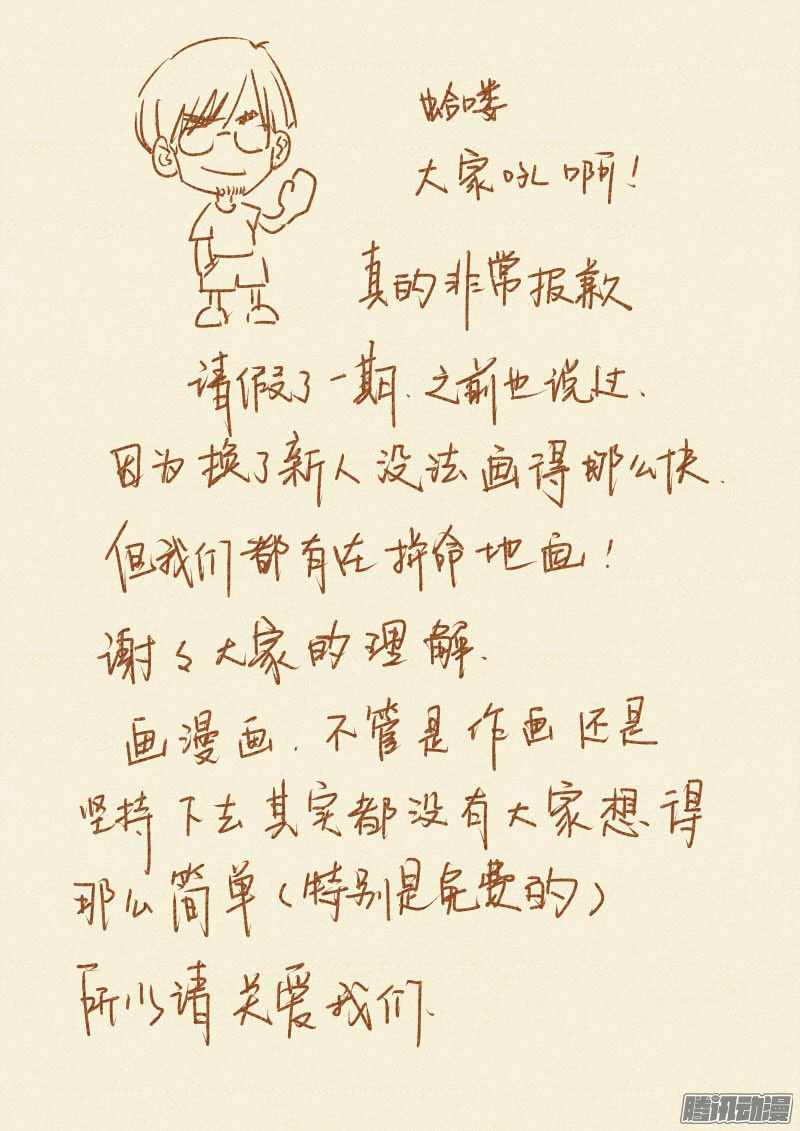 蛤喽
大家吼啊！
真的非常报歉
请假了一期、之前也说过、
因为换了新人没法画得那么快.
但我们都有在拼命地画！
谢々大家的理解.
画漫画、不管是作画还是
坚持下去其实都没有大家想得
那么简单（特别是免费的）
所以请关爱我们.
腾讯动漫